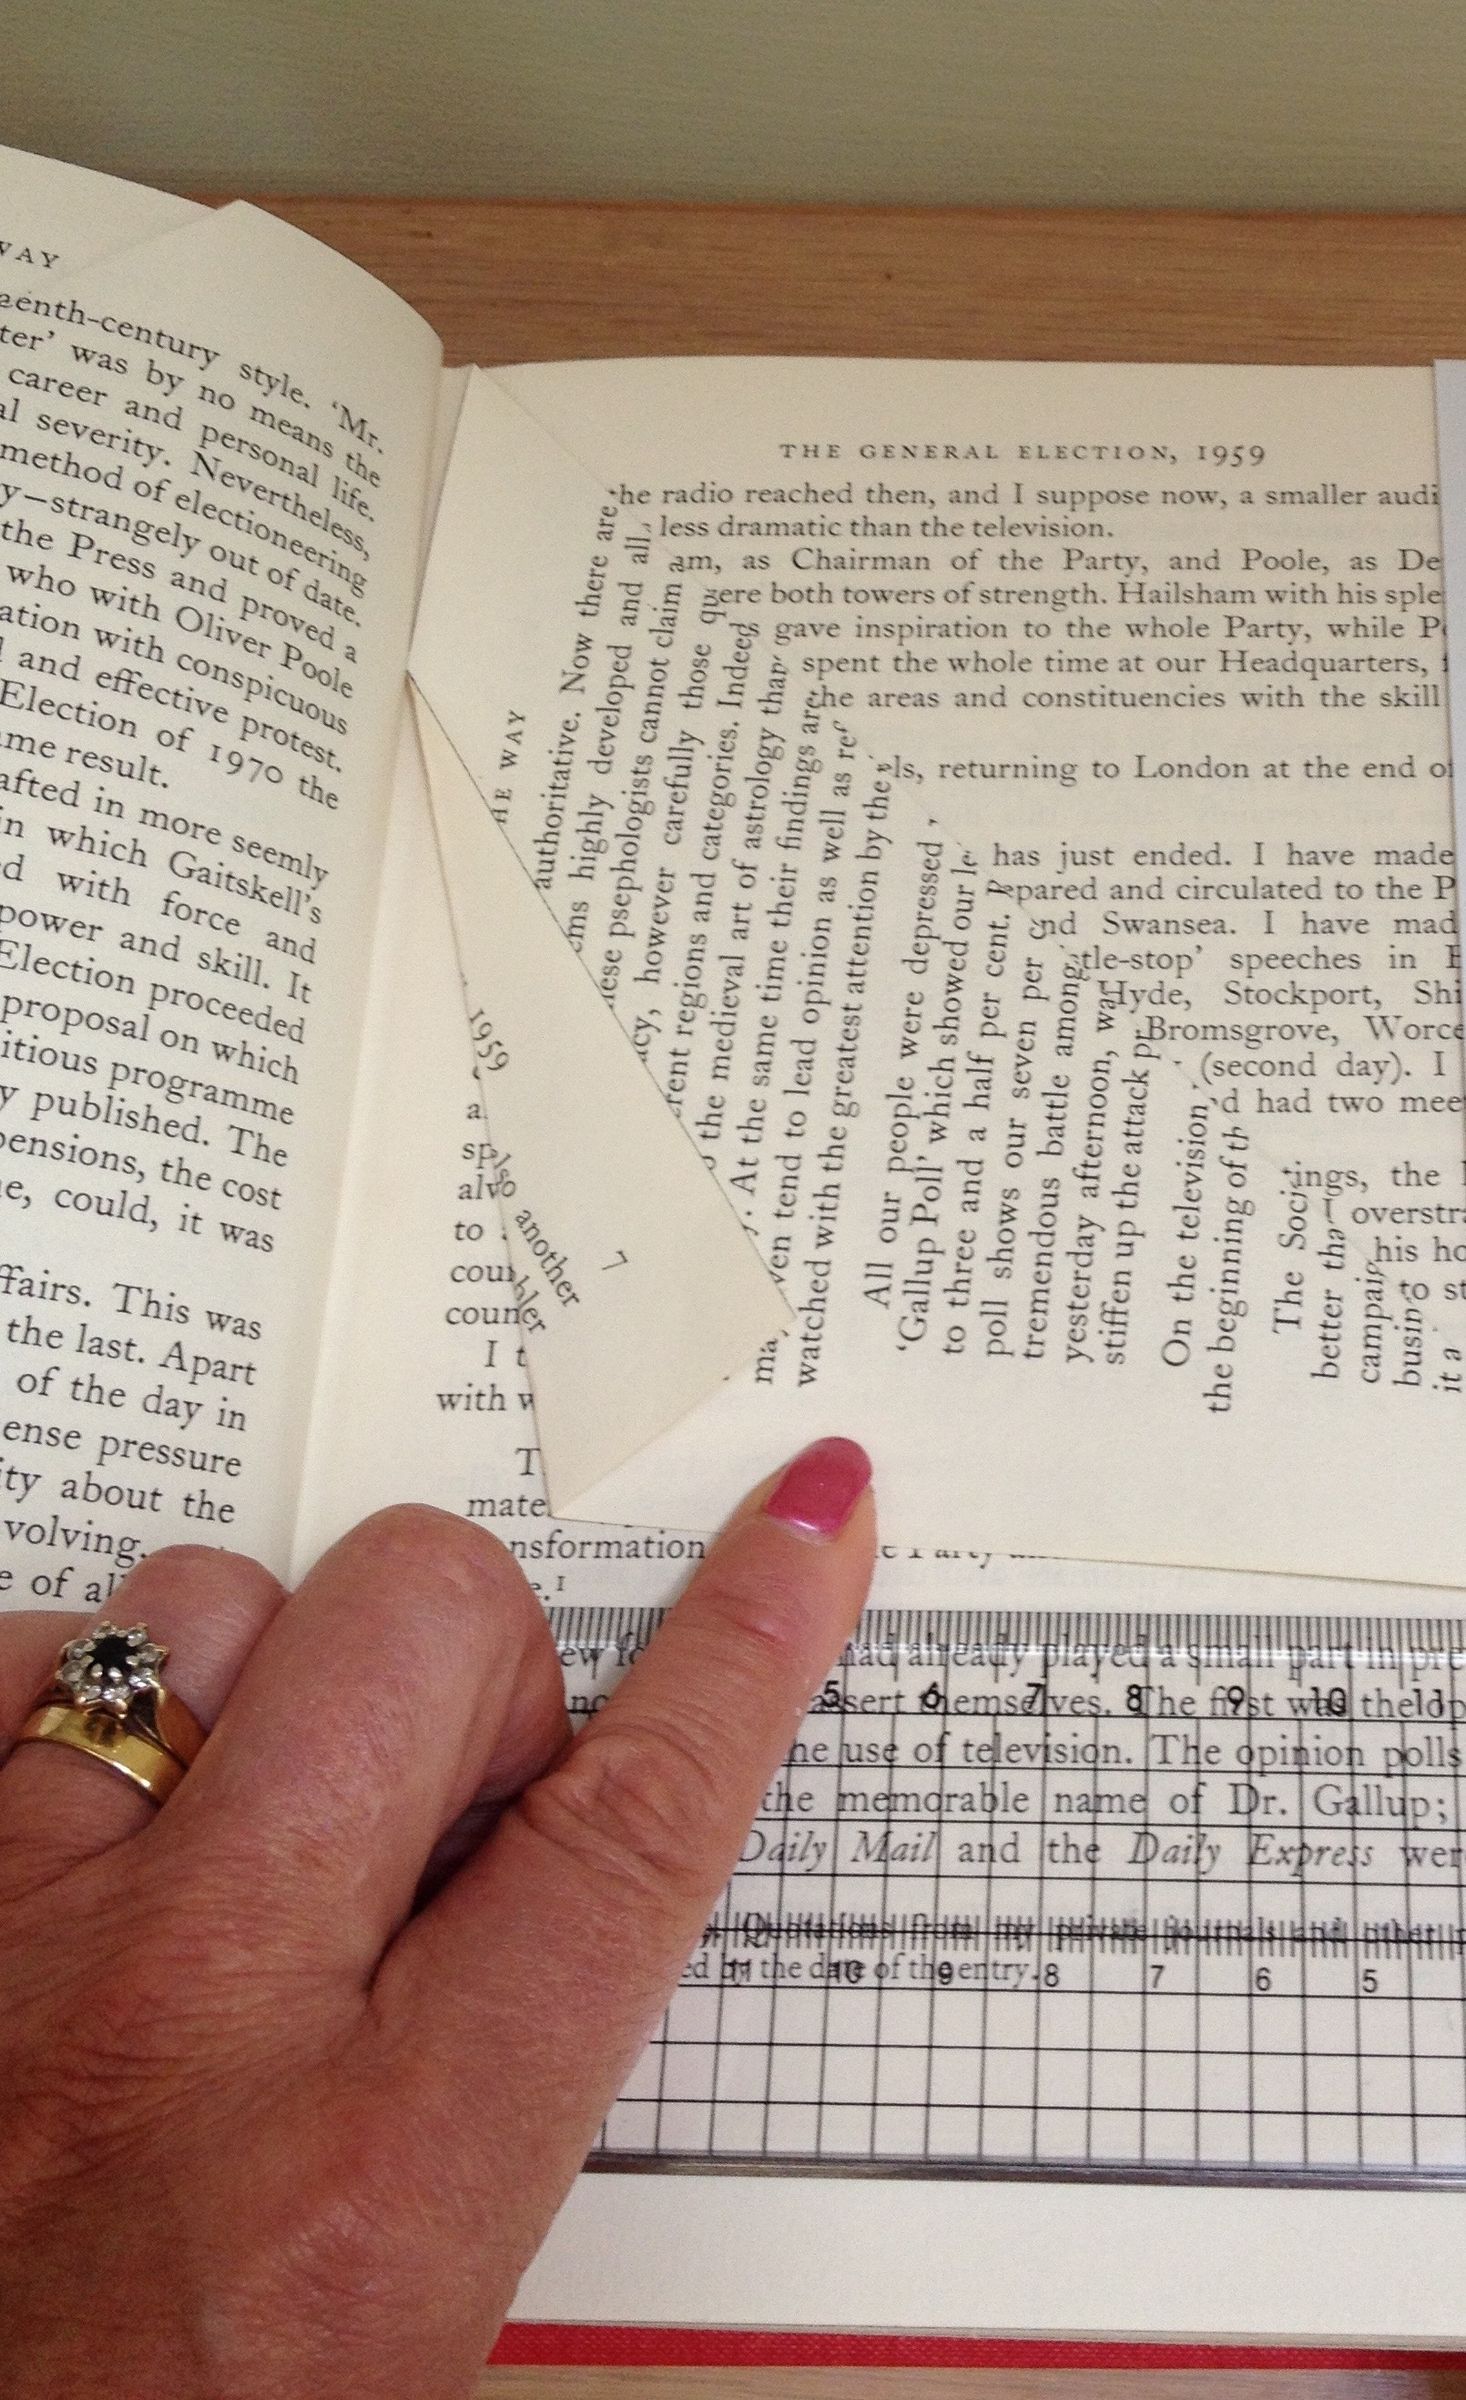 WAY
style. 'Mr.
ter' was by no means the
career and personal life.
severity. Nevertheless,
method of electioneering
y—strangely out of date.
the Press and proved a
who with Oliver Poole
ation with conspicuous
and and effective protest.
Election of 1970 the
me result.
afted in more seemly
in which Gaitskell's
ed with force and
power and skill. It
Election proceeded
proposal on which
itious programme
y published. The
pensions, the cost
e, could, it was
ffairs. This was
the last. Apart
of the day in
ense pressure
ity about the
volving.
e of al
THE GENERAL ELECTION, 1959
he radio reached then, and I suppose now, a smaller audi
less dramatic than the television.
am, as Chairman of the Party, and Poole, as De
ere both towers of strength. Hailsham with his sple
gave inspiration to the whole Party, while P
spent the whole time at our Headquarters,
the areas and constituencies with the skill
ls, returning to London at the end of
has just ended. I have made
epared and circulated to the P
nd Swansea. I have mad
tle-stop' speeches in
Hyde, Stockport, Shi
Bromsgrove, Worce
(second day). I
d had two mee
ings, the
overstra
his ho
to st
HE WAY
authoritative. Now there are
ems highly developed and all
hese psephologists cannot claim
acy, however carefully those qu
erent regions and categories. Indeed
the medieval art of astrology than
y. At the same time their findings are
ven tend to lead opinion as well as ref
watched with the greatest attention by the
All our people were depressed
'Gallup Poll' which showed our le
to three and a half per cent.
poll shows our seven per
tremendous battle among
yesterday afternoon, wa
stiffen up the attack pr
On the television,
the beginning of th
The Soci
better tha
campaig
busin
it a
1959
also another
7
I t
with w
mate
nsformation
e.¹
had already played a small part in pre
assert themselves. The first was the op
he use of television. The opinion polls
the memorable name of Dr. Gallup;
Daily Mail and the Daily Express wer
Quotations from my private journals and other
ed by the date of the entry.
5 6 7 8 9 10 11
11 10 9 8 7 6 5